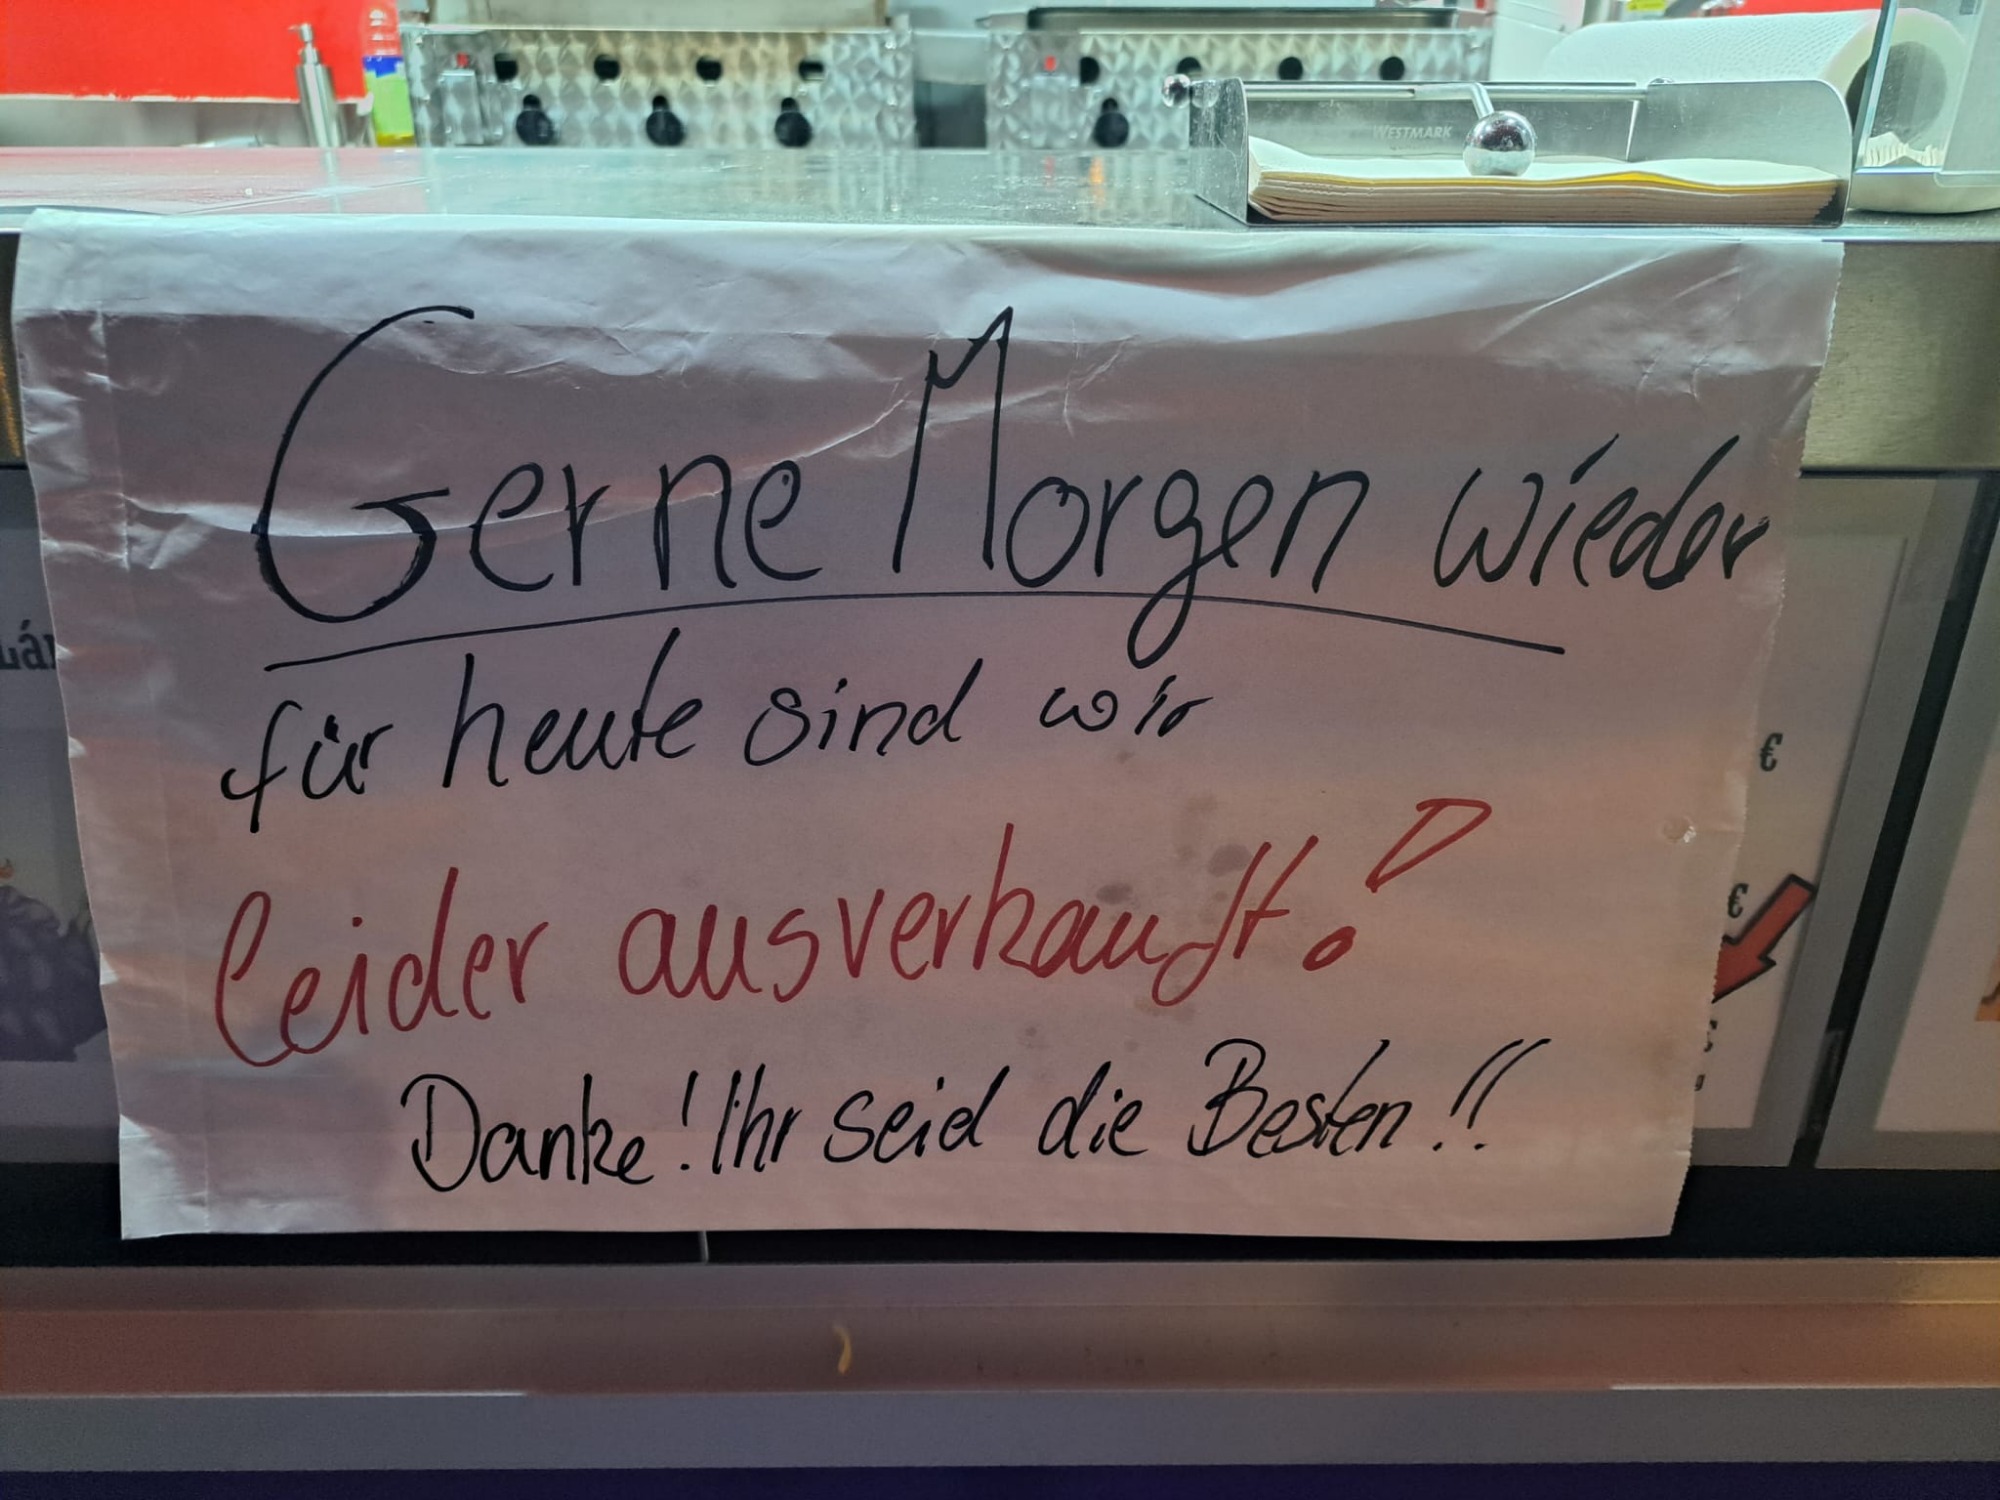 WESTMARK
Gerne Morgen wieder
für heute sind wir
leider ausverkauft!
Danke! Ihr seid die Besten!!
€
€